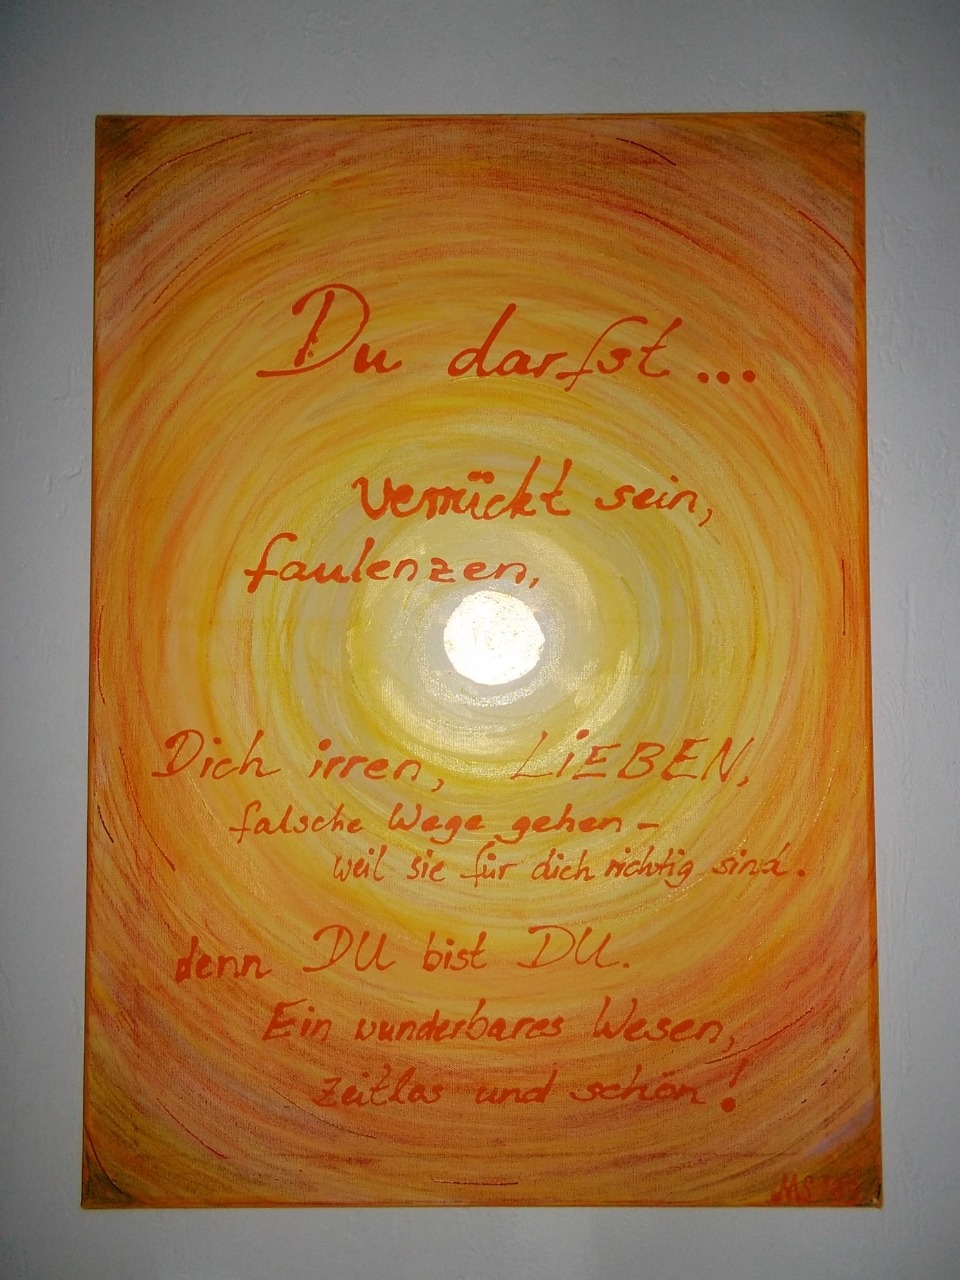 Du darfst...
verrückt sein,
faulenzen,
Dich irren, LiEBEN,
falsche Wege gehen –
weil sie für dich richtig sind.
denn DU bist DU.
Ein wunderbares Wesen,
zeitlos und schön!
MS